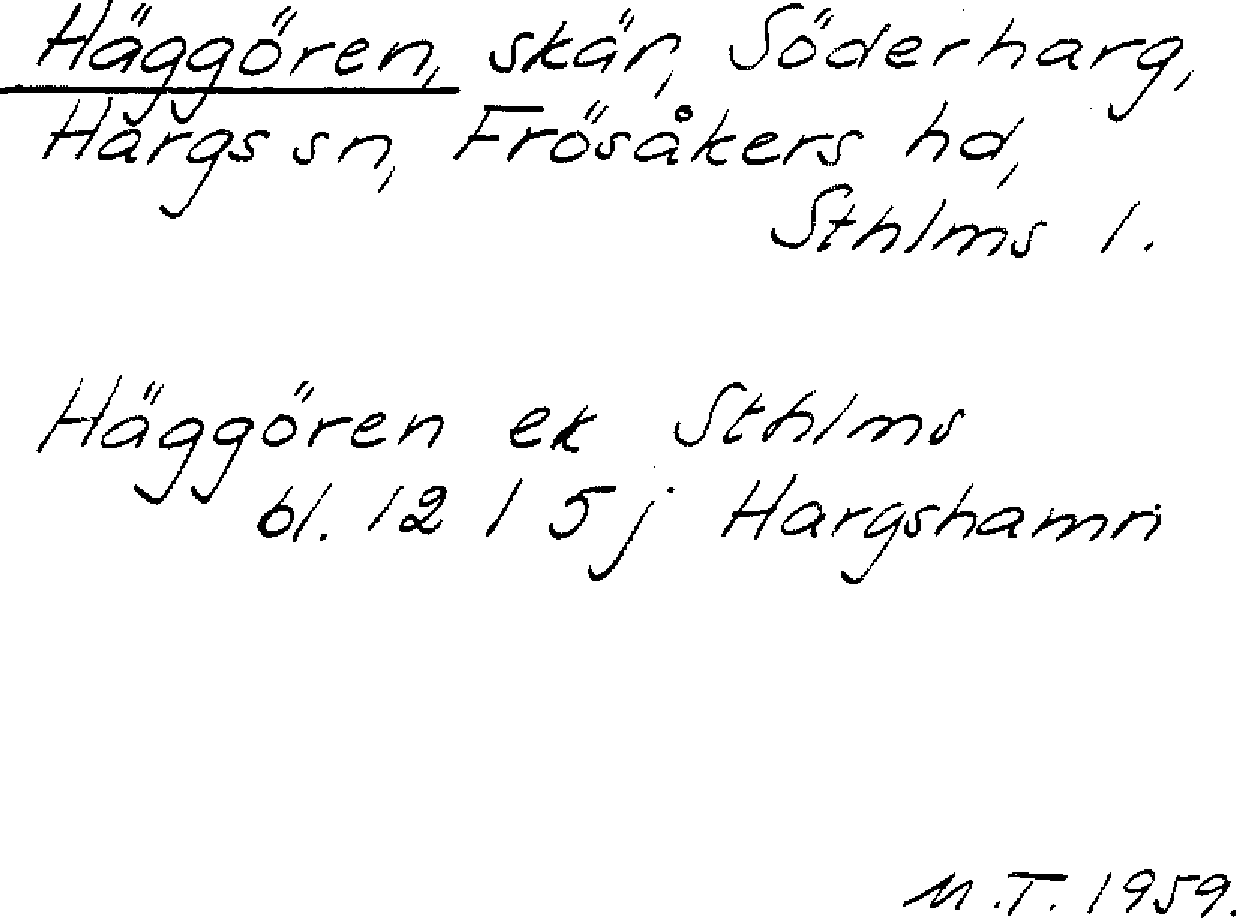 Häggören, skär, Söderharg,
Hargs sn, Frösåkers hd,
Sthlms l.
Häggören ek Sthlms
bl. 12 I 5 j Hargshamn
M.T. 1959.